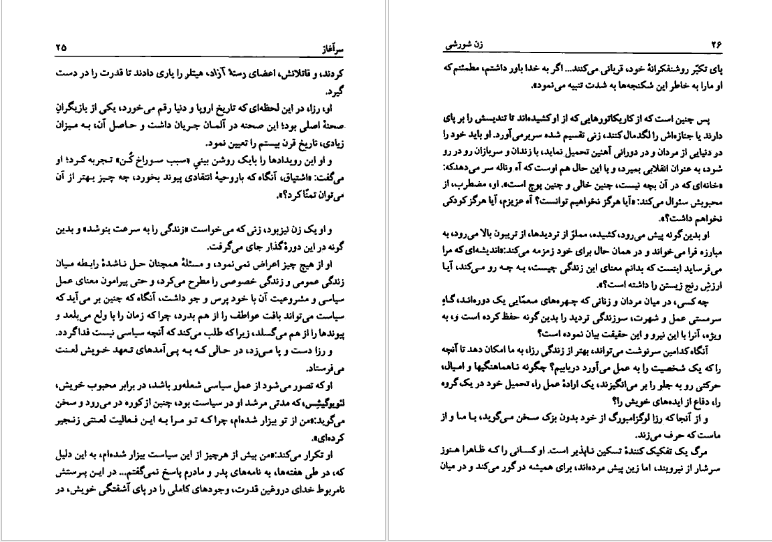 سرآغاز ۲۵
کردند، و قاتلانش، اعضای رستهٔ آزاد، هیتلر را یاری دادند تا قدرت را در دست
گیرد.
او، رزا، در این لحظه‌ای که تاریخ اروپا و دنیا رقم می‌خورد، یکی از بازیگران
صحنهٔ اصلی بود؛ این صحنه در آلمان جریان داشت و حاصل آن، به میزان
زیادی، تاریخ قرن بیستم را تعیین نمود.
و او این رویدادها را بایک روشن بینی «سبب سوراخ کُن» تجربه کرد؛ او
می‌گفت: «اشتیاق، آنگاه که باروحیهٔ انتقادی پیوند بخورد، چه چیز بهتر از آن
می‌توان تمنّا کرد؟».
و او یک زن نیزبود، زنی که می‌خواست «زندگی را به سرعت بنوشد» و بدین
گونه در این دورهٔ گذار جای می‌گرفت.
او از هیچ چیز اعراض نمی‌نمود، و مسئلهٔ همچنان حل ناشدهٔ رابطه میان
زندگی عمومی و زندگی خصوصی را مطرح می‌کرد، و حتی پیرامون معنای عمل
سیاسی و مشروعیت آن با خود پرس و جو داشت، آنگاه که چنین بر می‌آید که
سیاست می‌تواند بافت عواطف را از هم بدرد، چرا که زمان را با ولع می‌بلعد و
پیوندها را از هم می‌گسلد، زیرا که طلب می‌کند که آنچه سیاسی نیست فدا گردد.
و رزا دست و پا می‌زد، در حالی که به پی آمدهای تعهد خویش لعنت
می‌فرستاد.
او که تصور می‌شود از عمل سیاسی شعله‌ور باشد، در برابر محبوب خویش،
لئویوگیشِس، که مدتی مرشد او در سیاست بود، چنین از کوره در می‌رود و سخن
می‌گوید:«من از تو بیزار شده‌ام، چرا که تو مرا به این فعالیت لعنتی زنجیر
کرده‌ای».
او تکرار می‌کند:«من بیش از هرچیز از این سیاست بیزار شده‌ام، به این دلیل
که، در طی هفته‌ها، به نامه‌های پدر و مادرم پاسخ نمی‌گفتم... در این پرستش
نامربوط خدای دروغین قدرت، وجودهای کاملی را در پای آشفتگی خویش، در
۲۶ زن شورشی
پای تکبّر روشنفکرانهٔ خود، قربانی می‌کنند... اگر به خدا باور داشتم، مطمئنم که
او مارا به خاطر این شکنجه‌ها به شدت تنبیه می‌نمود».
پس چنین است که از کاریکاتورهایی که از او کشیده‌اند تا تندیسش را بر پای
دارند یا جنازه‌اش را لگدمال کنند، زنی تقسیم شده سربرمی‌آورد. او باید خود را
در دنیایی از مردان و در دورانی آهنین تحمیل نماید، با زندان و سربازان رو در رو
شود، به عنوان انقلابی بمیرد، و با این حال هم اوست که آه وناله سر می‌دهدکه:
«خانه‌ای که در آن بچه نیست، چنین خالی و چنین پوچ است». او، مضطرب، از
محبوبش سئوال می‌کند: «آیا هرگز نخواهیم توانست؟ آه عزیزم، آیا هرگز کودکی
نخواهم داشت؟».
او بدین گونه پیش می‌رود، کشیده، مملوّ از تردیدها، از تریبون بالا می‌رود، به
مبارزه فرا می‌خواند و در همان حال برای خود زمزمه می‌کند:«اندیشه‌ای که مرا
می‌فرساید اینست که بدانم معنای این زندگی چیست، به چه رو می‌کند، آیا
ارزشِ رنج زیستن را داشته است؟».
چه کسی، در میان مردان و زنانی که چهره‌های معمّایی یک دوره‌اند، گاهِ
سرمستی عمل و شهرت، سوزندگی تردید را بدین گونه حفظ کرده است و، به
ویژه، آنرا با این نیرو و این حقیقت بیان نموده است؟
آنگاه کدامین سرنوشت می‌تواند، بهتر از زندگی رزا، به ما امکان دهد تا آنچه
را که یک شخصیت را به عمل می‌آورد دریابیم؟ چگونه ناهماهنگیها و امیال،
حرکتی رو به جلو را بر می‌انگیزند، یک ارادهٔ عمل را، تحمیل خود در یک گروه
را، دفاع از ایده‌های خویش را؟
و از آنجا که رزا لوگزامبورگ از خود بدون بزک سخن می‌گوید، با ما و از
ماست که حرف می‌زند.
مرگ یک تفکیک کنندهٔ تسکین ناپذیر است. او کسانی را که ظاهرا هنوز
سرشار از نیرویند، اما زین پیش مرده‌اند، برای همیشه در گور می‌کند و در میان